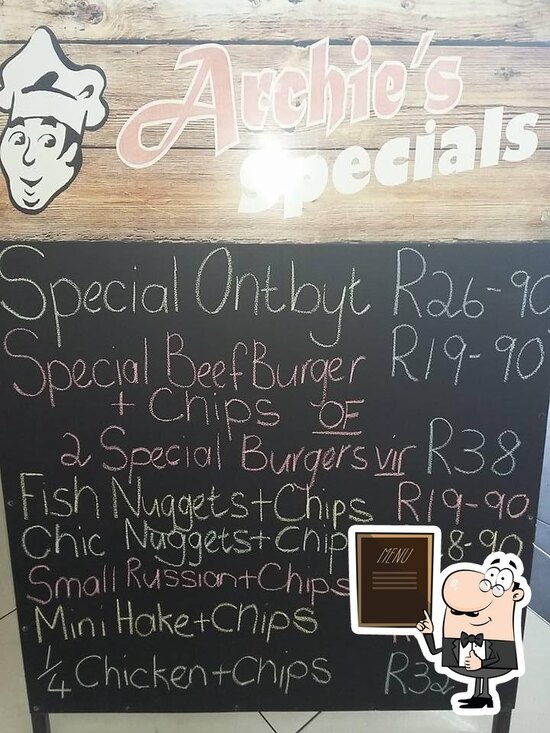 Archie's
Specials
Special Ontbyt R26-90
Special Beef Burger R19-90
+ Chips OF
2 Special Burgers vir R38
Fish Nuggets+Chips R19-90
Chic Nuggets+Chip 8-90
Small Russian+Chips
Mini Hake+Chips
1/4 Chicken+Chips
MENU